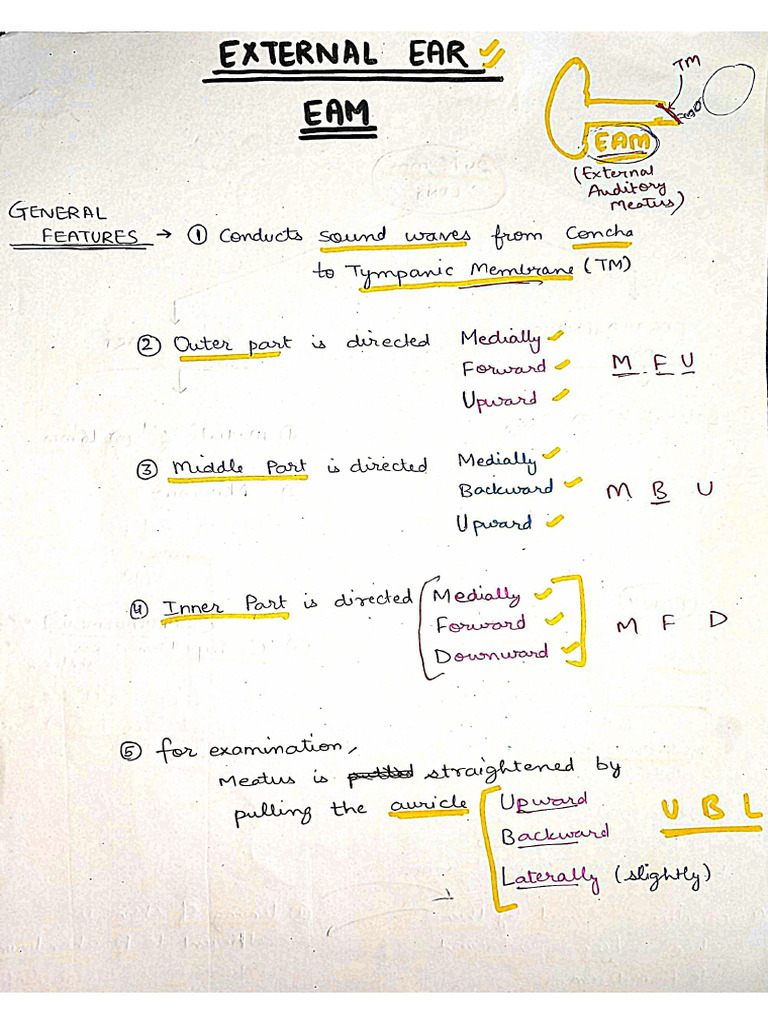 EXTERNAL EAR
EAM
TM
EAM
(External
Auditory
Meatus)
GENERAL
FEATURES → ① Conducts sound waves from Concha
to Tympanic Membrane (TM)
② Outer part is directed Medially
Forward
Upward
M F U
③ Middle Part is directed Medially
Backward
Upward
M B U
④ Inner Part is directed Medially
Forward
Downward
M F D
⑤ for examination,
Meatus is straightened by
pulling the auricle Upward
Backward
Laterally (slightly)
U B L